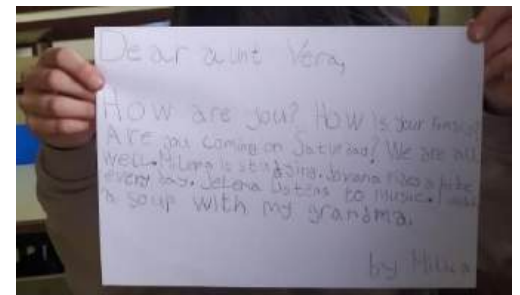 Dear aunt Vera,
How are you? How is your family?
Are you coming on Saturday? We are all
well. Milena is studying. Jovana rides a bike
every day. Jelena listens to music. I
a soup with my grandma.
by